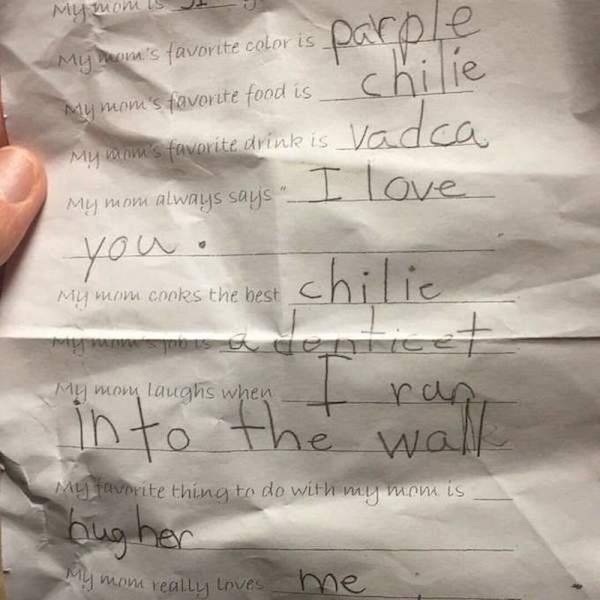 My mom is 31
My mom's favorite color is parple
My mom's favorite food is chilie
My mom's favorite drink is Vadca
My mom always says " I love
you.
My mom cooks the best chilie
My mom's job is a denticet
My mom laughs when I run
into the wall
My favorite thing to do with my mom is
hug her
My mom really loves me.